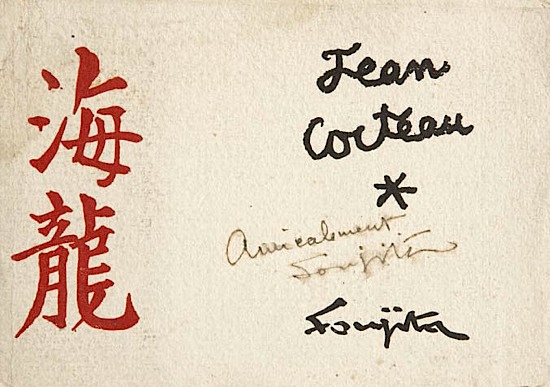 海龍
Jean
Cocteau
*
Amicalement
Foujita
Foujita